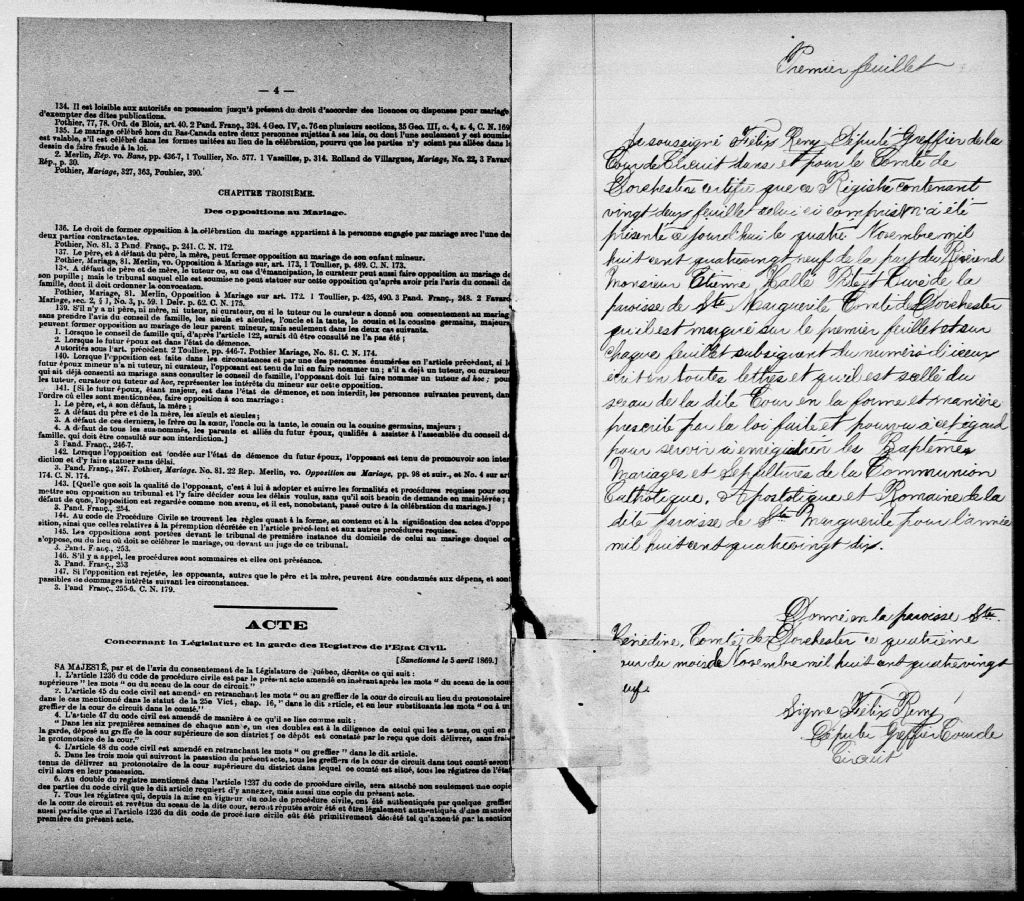 — 4 —
134. Il est loisible aux autorités en possession jusqu'à présent du droit d'accorder des licences ou dispenses pour mariage
d'exempter des dites publications.
Pothier, 77, 78. Ord. de Blois, art. 40. 2 Pand. Franç., 324. 4 Geo. IV, c. 76 en plusieurs sections, 35 Geo. III, c. 4, s. 4, C. N. 169
135. Le mariage célébré hors du Bas-Canada entre deux personnes sujettes à ses lois, ou dont l'une seulement y est soumise
est valable, s'il est célébré dans les formes usitées au lieu de la célébration, pourvu que les parties n'y soient pas allées dans le
dessein de faire fraude à la loi.
2. Merlin, Rép. vo. Bans, pp. 436-7, 1 Toullier, No. 577. 1 Vazeilles, p. 314. Rolland de Villargues, Mariage, No. 22, 3 Favard
Rép., p. 50.
Pothier, Mariage, 327, 363, Pouhier, 390.
CHAPITRE TROISIÈME.
Des oppositions au Mariage.
136. Le droit de former opposition à la célébration du mariage appartient à la personne engagée par mariage avec l'une des
deux parties contractantes.
Pothier, No. 81. 3 Pand. Franç., p. 241. C. N. 172.
137. Le père, et à défaut du père, la mère, peut former opposition au mariage de son enfant mineur.
Pothier, Mariage, 81. Merlin, vo. Opposition à Mariage sur art. 173, 1 Toullier, p. 489. C. N. 173.
138. A défaut de père et de mère, le tuteur ou, au cas d'émancipation, le curateur peut aussi faire opposition au mariage de
son pupille; mais le tribunal auquel elle est soumise ne peut statuer sur cette opposition qu'après avoir pris l'avis du conseil de
famille, dont il doit ordonner la convocation.
Pothier, Mariage, 81. Merlin, Opposition à Mariage sur art. 172. 1 Toullier, p. 425, 490. 3 Pand. Franç., 248. 2 Favard
Mariage, sec. 2, § 1, No. 3, p. 59. 1 Delv. p. 62. C. N. 175.
139. S'il n'y a ni père, ni mère, ni tuteur, ni curateur, ou si le tuteur ou le curateur a donné son consentement au mariage
sans prendre l'avis du conseil de famille, les aïeuls et aïeules, l'oncle et la tante, le cousin et la cousine germains, majeurs
peuvent former opposition au mariage de leur parent mineur, mais seulement dans les deux cas suivants.
1. Lorsque le conseil de famille qui, d'après l'article 122, aurait dû être consulté ne l'a pas été;
2. Lorsque le futur époux est dans l'état de démence.
Autorités sous l'art. précédent 2 Toullier, pp. 446-7. Pothier Mariage, No. 81. C. N. 174.
140. Lorsque l'opposition est faite dans les circonstances et par une des personnes énumérées en l'article précédent, si le
futur époux mineur n'a ni tuteur, ni curateur, l'opposant est tenu de lui en faire nommer un; s'il a déjà un tuteur, ou curateur
qui ait déjà consenti au mariage sans consulter le conseil de famille, l'opposant doit lui faire nommer un tuteur ad hoc; pour
les tuteur, curateur ou tuteur ad hoc, représenter les intérêts du mineur sur cette opposition.
141. [Si le futur époux, étant majeur, est dans l'état de démence, et non interdit, les personnes suivantes peuvent, dans
l'ordre où elles sont mentionnées, faire opposition à son mariage:
1. Le père, et, à son défaut, la mère;
2. A défaut du père et de la mère, les aïeuls et aïeules;
3. A défaut de ces derniers, le frère ou la sœur, l'oncle ou la tante, le cousin ou la cousine germains, majeurs;
4. A défaut de tous les sus-nommés, les parents et alliés du futur époux, qualifiés à assister à l'assemblée du conseil de
famille, qui doit être consulté sur son interdiction.]
3 Pand. Franç., 246-7.
142. Lorsque l'opposition est fondée sur l'état de démence du futur époux, l'opposant est tenu de promouvoir son inter-
diction et d'y faire statuer sans délai.
3. Pand. Franç., 247. Pothier, Mariage. No. 81. 22 Rep. Merlin, vo. Opposition au Mariage, pp. 98 et suiv., et No. 4 sur art
174. C. N. 174.
143. [Quelle que soit la qualité de l'opposant, c'est à lui à adopter et suivre les formalités et procédures requises pour sou-
mettre son opposition au tribunal et l'y faire décider sous les délais voulus, sans qu'il soit besoin de demande en main-levée; à
défaut de quoi, l'opposition est regardée comme non avenu, et il est, nonobstant, passé outre à la célébration du mariage.]
3. Pand. Franç., 254.
144. Au code de Procédure Civile se trouvent les règles quant à la forme, au contenu et à la signification des actes d'oppo-
sition, ainsi que celles relatives à la péremption décrétée en l'article précédent et aux autres procédures requises.
145. Les oppositions sont portées devant le tribunal de première instance du domicile de celui au mariage duquel on
s'oppose, ou du lieu où doit se célébrer le mariage, ou devant un juge de ce tribunal.
3. Pand. Franç., 253.
146. S'il y a appel, les procédures sont sommaires et elles ont préséance.
3. Pand. Franç., 253
147. Si l'opposition est rejetée, les opposants, autres que le père et la mère, peuvent être condamnés aux dépens, et sont
passibles de dommages intérêts suivant les circonstances.
3. Pand Franç., 255-6. C. N. 179.
ACTE
Concernant la Législature et la garde des Registres de l'Etat Civil.
[Sanctionné le 5 avril 1869.]
SA MAJESTÉ, par et de l'avis du consentement de la Législature de Québec, décrète ce qui suit:
1. L'article 1236 du code de procédure civile est par le présent acte amendé en insérant après les mots " du sceau de la cour
supérieure " les mots " ou du sceau de la cour de circuit."
2. L'article 45 du code civil est amendé en retranchant les mots " ou au greffier de la cour de circuit au lieu du protonotaire
dans le cas mentionné dans le statut de la 25e Vict, chap. 16, " dans le dit article, et en leur substituants les mots " ou à un
greffier de la cour de circuit dans le comté."
4. L'article 47 du code civil est amendé de manière à ce qu'il se lise comme suit:
" Dans les six premières semaines de chaque année, un des doubles est à la diligence de celui qui les a tenus, ou qui en a
la garde, déposé au greffe de la cour supérieure de son district; ce dépôt est constaté par le reçu que doit délivrer, sans frais
le protonotaire de la cour."
4. L'article 48 du code civil est amendé en retranchant les mots " ou greffier " dans le dit article.
5. Dans les trois mois qui suivront la passation du présent acte, tous les greffiers de la cour de circuit dans tout comté seront
tenus de délivrer au protonotaire de la cour supérieure du district dans lequel ce comté est situé, tous les régistres de l'état
civil alors en leur possession.
6. Au double du registre mentionné dans l'article 1237 du code de procédure civile, sera attaché non seulement une copie
des parties du code civil que le dit article requiert d'y annexer, mais aussi une copie du présent acte.
7. Tous les régistres qui, depuis la mise en vigueur du code de procédure civile, ont été authentiqués par quelque greffier
de la cour de circuit et revêtus du sceau de la dite cour, seront réputés avoir été et être légalement authentiqués d'une manière
aussi parfaite que si l'article 1236 du dit code de procédure civile eût été primitivement décrété tel qu'amendé par la section
première du présent acte.
Premier feuillet
Je soussigné Félix Remy Député Greffier de la
Cour de Circuit dans et pour le Comté de
Dorchester certifie que ce Régistre contenant
vingt deux feuillet celui ci compris m'a été
présenté ce jourd'hui le quatre Novembre mil
huit cent quatrevingt neuf de la part du Révérend
Monsieur Etienne Hallé Ptre et Curé de la
paroisse de Ste Marguerite Comté de Dorchester
qu'il est marqué sur le premier feuillet et sur
chaque feuillet subséquant du numéro d'iceux
écrit en toutes lettres et qu'il est scellé du
sceau de la dite Cour en la forme et manière
prescrite par la loi faite et pourvu à cet égard
pour servir à enrégistrer les Baptêmes
Mariages et Sépultures de la Communion
Catholique, Apostolique et Romaine de la
dite paroisse de Ste Marguerite pour l'année
mil huit cent quatrevingt dix.
Donné en la paroisse Ste
Hénédine, Comté de Dorchester ce quatrième
jour du mois de Novembre mil huit cent quatrevingt
neuf.
Signé Félix Remy
Député Greffier Cour de
Circuit